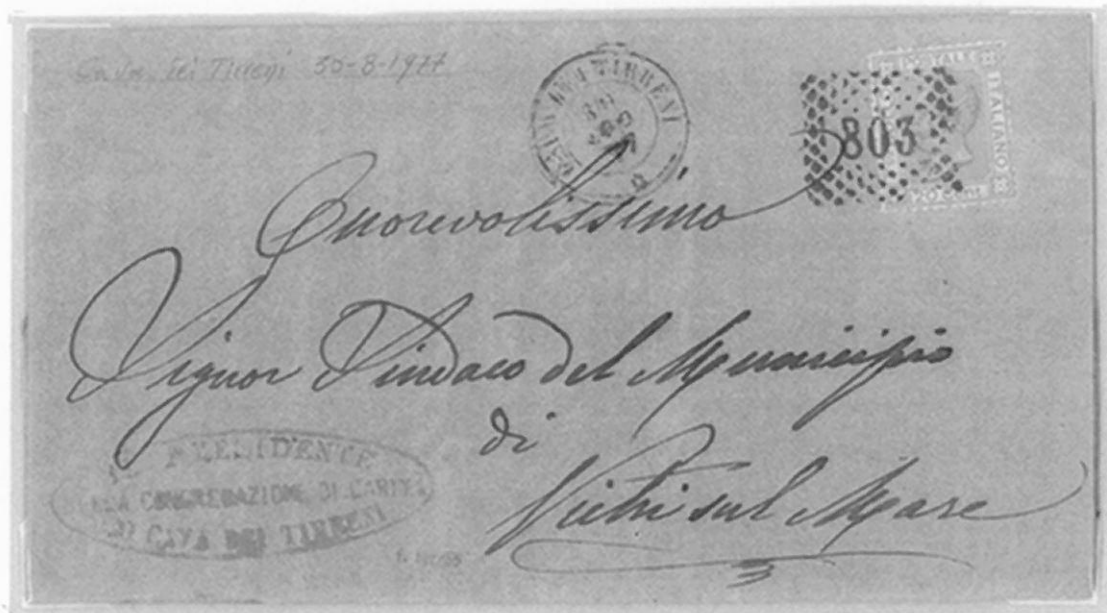 Cava dei Tirreni 30-8-1977
TIRRENI
803
POSTALE
ITALIANO
Onorevolissimo
Signor Sindaco del Municipio
di
Vietri sul Mare
PRESIDENTE
CONGREGAZIONE DI CARITA
DI CAVA DEI TIRRENI